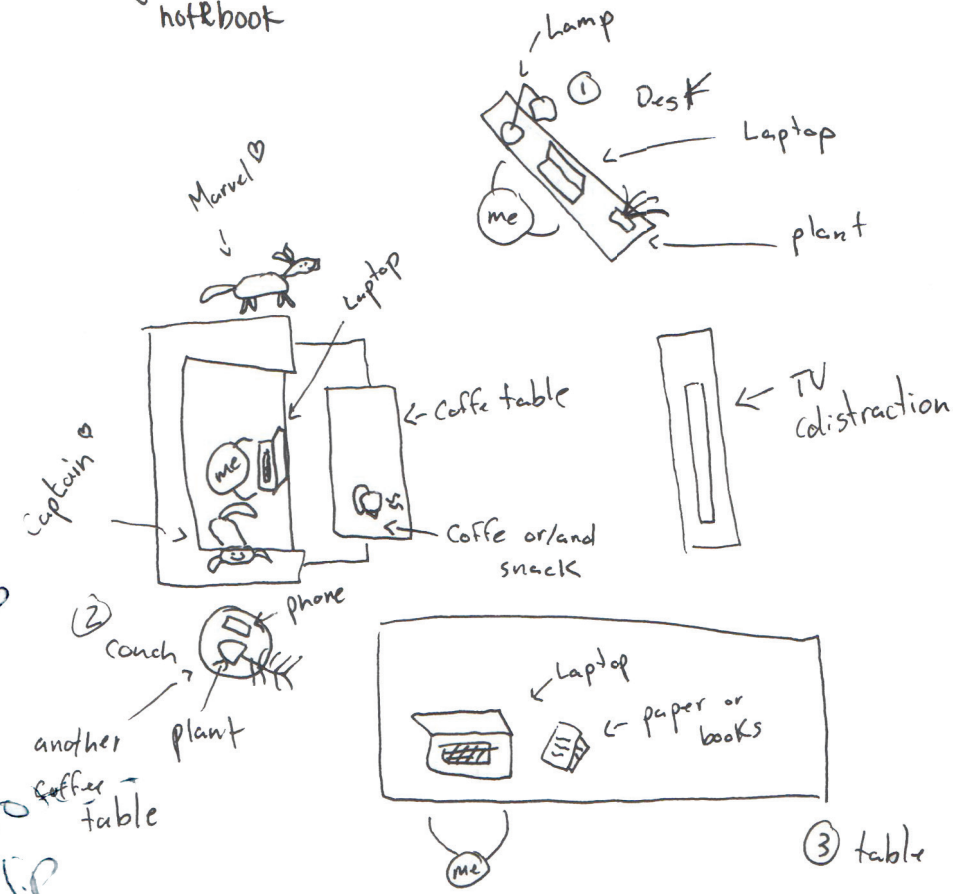 notebook
Lamp
1
Desk
Laptop
me
plant
Marvel
Laptop
Coffe table
TV
(distraction
me
Captain
Coffe or/and
snack
2
couch
phone
another
coffee
table
plant
Laptop
paper or
books
me
3 table